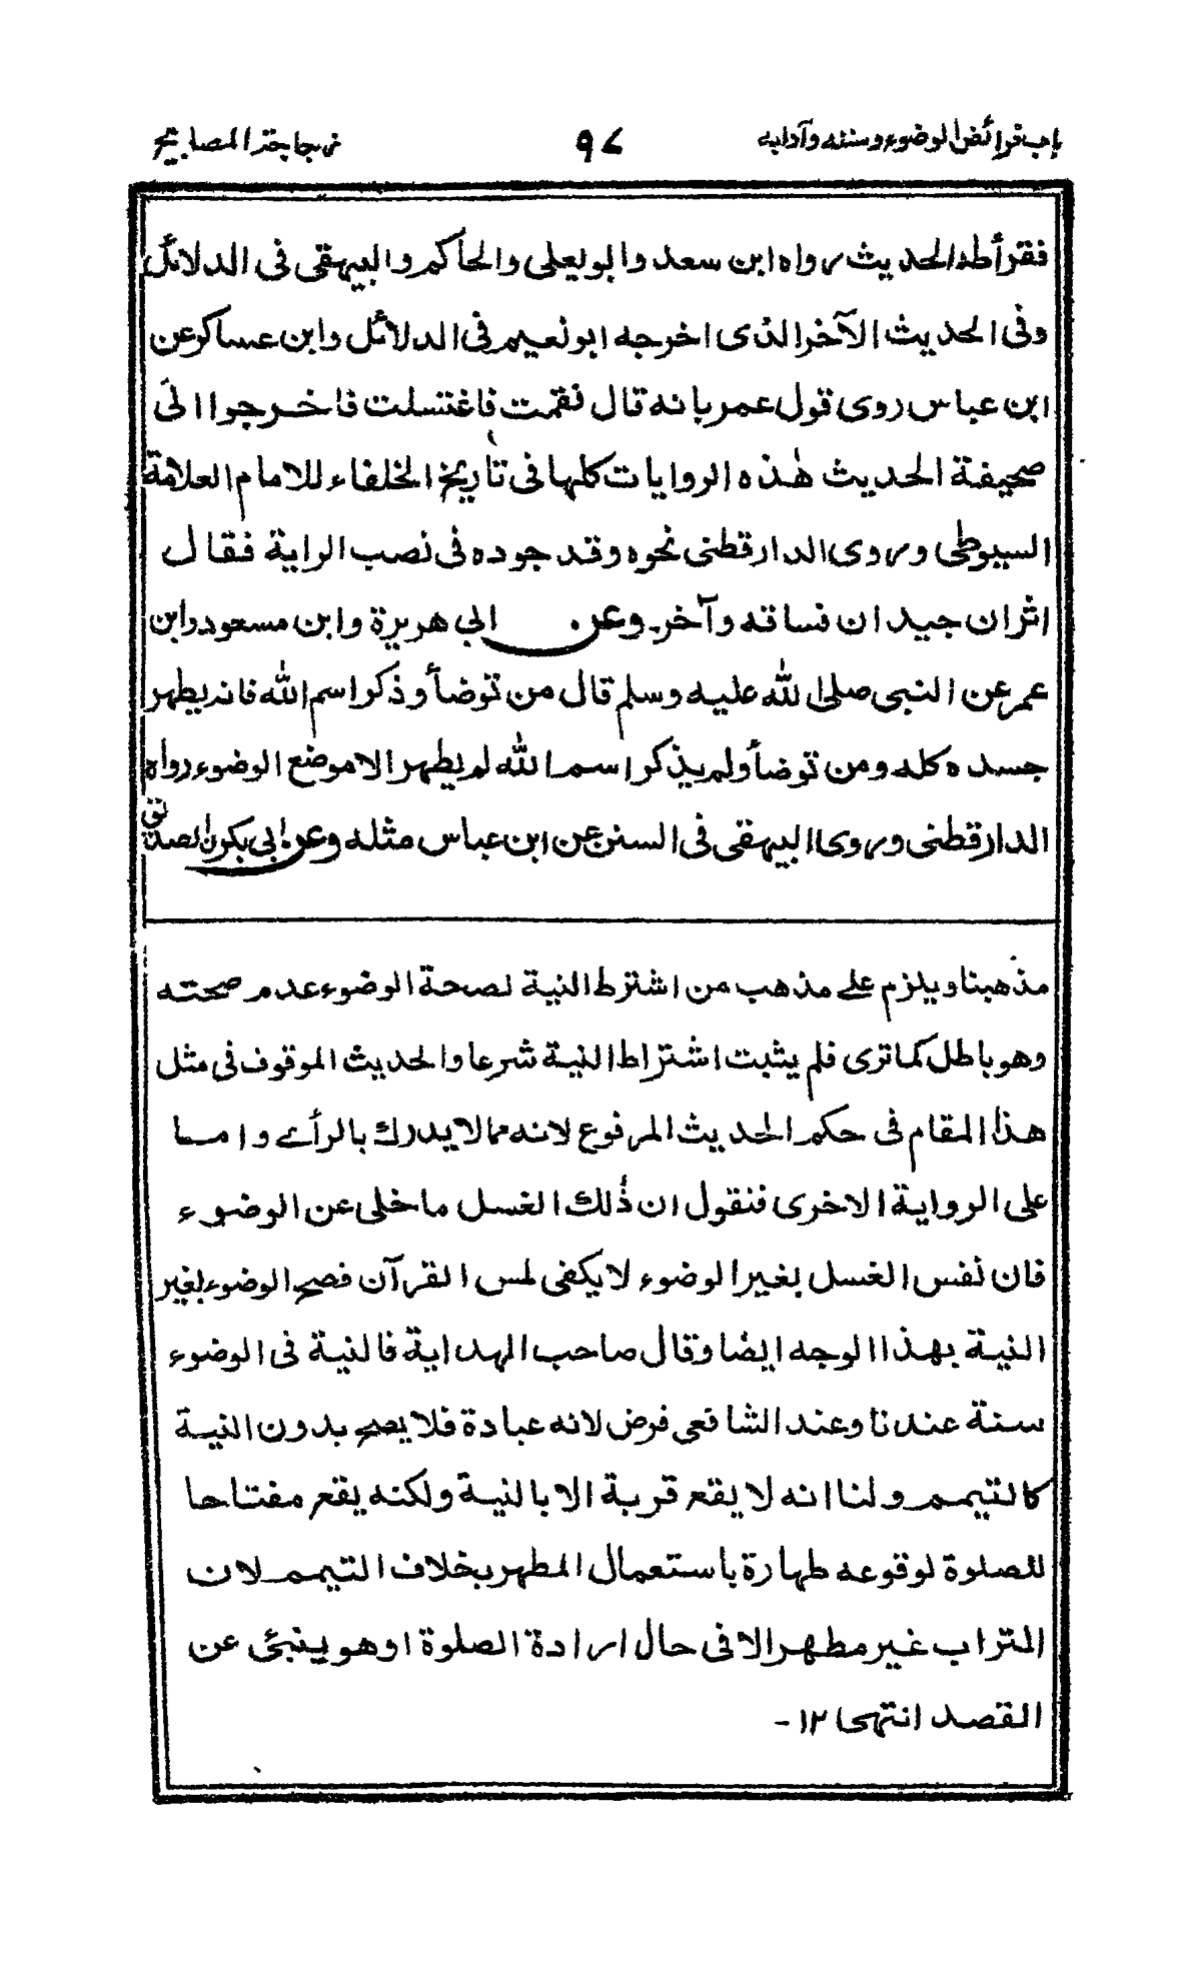 باب فرائض الوضوء وسننه وآدابه ٩٧ زجاجة المصابيح
فقرأ طه الحديث رواه ابن سعد وابو يعلى والحاكم والبيهقى فى الدلائل
وفى الحديث الآخر الذى اخرجه ابو نعيم فى الدلائل وابن عساكر عن
ابن عباس روى قول عمر بانه قال فقمت فاغتسلت فاخرجوا الىّ
صحيفة الحديث هذه الروايات كلها فى تأريخ الخلفاء للامام العلامة
السيوطى وروى الدارقطنى نحوه وقد جوده فى نصب الراية فقال
اثران جيدان فساقه وآخر۔ وعن ابي هريرة وابن مسعود وابن
عمر عن النبى صلى الله عليه وسلم قال من توضأ وذكر اسم الله فانه يطهر
جسده كله ومن توضأ ولم يذكر اسم الله لم يطهر الا موضع الوضوء رواه
الدارقطنى وروى البيهقى فى السنن عن ابن عباس مثله وعن ابي بكرن الصديق
مذهبنا ويلزم على مذهب من اشترط النية لصحة الوضوء عدم صحته
وهو باطل كما ترى فلم يثبت اشتراط النية شرعا والحديث الموقوف فى مثل
هذا المقام فى حكم الحديث المرفوع لانه مما لا يدرك بالرأے واما
على الرواية الاخرى فنقول ان ذلك الغسل ما خلى عن الوضوء
فان نفس الغسل بغير الوضوء لا يكفى لمس القرآن فصح الوضوء بغير
النية بهذا الوجه ايضا وقال صاحب الهداية فالنية فى الوضوء
سنة عندنا وعند الشافعى فرض لانه عبادة فلا يصح بدون النية
كالتيمم ولنا انه لا يقع قربة الا بالنية ولكنه يقع مفتاحا
للصلوة لوقوعه طهارة باستعمال المطهر بخلاف التيمم لان
التراب غير مطهر الا فى حال ارادة الصلوة او هو ينبئ عن
القصد انتهى ١٢ -